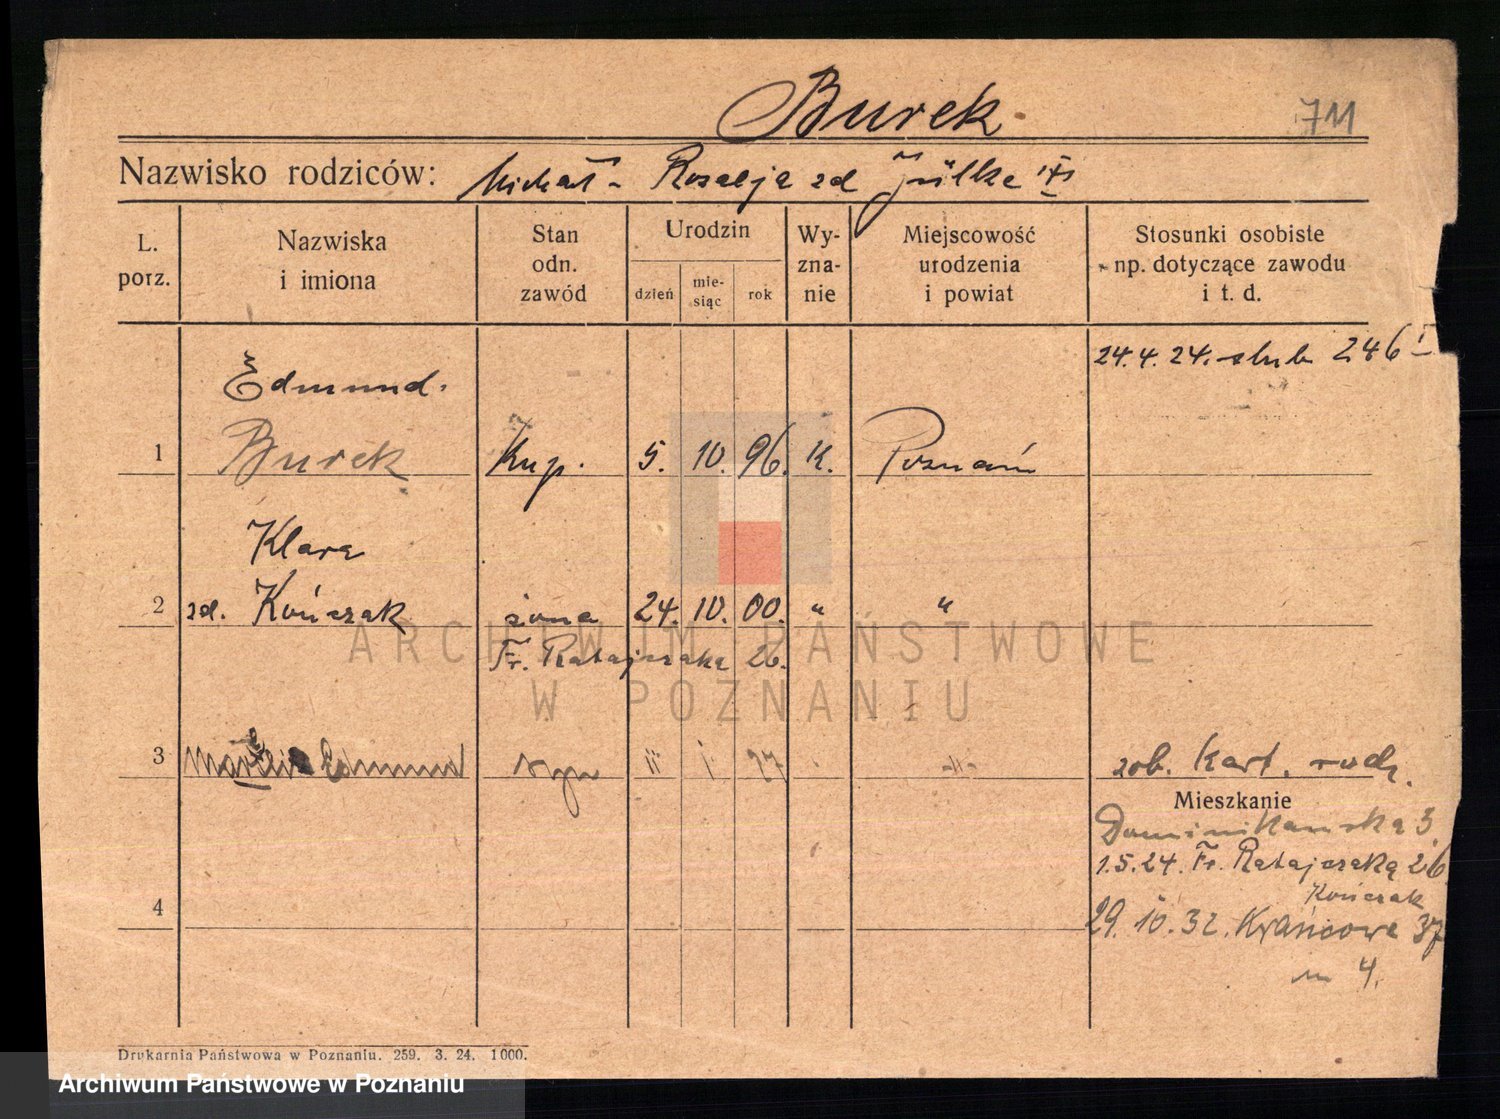 Burek
711
Nazwisko rodziców: Michał - Rozalja zd Jülke
L. porz.
Nazwiska i imiona
Stan odn. zawód
Urodzin
dzień
mie-siąc
rok
Wy-zna-nie
Miejscowość urodzenia i powiat
Stosunki osobiste np. dotyczące zawodu i t. d.
24.4.24. slub 246 I
Edmund.
1 Burek Kup. 5. 10. 96. K. Poznań
Klara
2 zd. Kończak żona 24. 10. 00. " "
Fr. Ratajczaka 26.
3 Edmund syn 11 1 27 -"-
zob. Kart. rodz.
Mieszkanie
Dominikańska 3.
1.5.24. Fr. Ratajczaka 26
Kończak
4
29.10.32. Krańcowa 37
m 4.
Drukarnia Państwowa w Poznaniu. 259. 3. 24. 1000.
ARCHIWUM PAŃSTWOWE
W POZNANIU
Archiwum Państwowe w Poznaniu